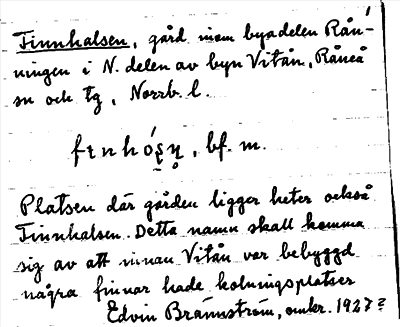 Finnhalsen, gård inom byadelen Rån-
ningen i N. delen av byn Vitån, Råneå
sn och tg, Norrb. l.
bf. m.
Platsen där gården ligger heter också
Finnhalsen. Detta namn skall komma
sig av att innan Vitån var bebyggd
några finnar hade kolningsplatser
Edvin Brännström, omkr. 1927?